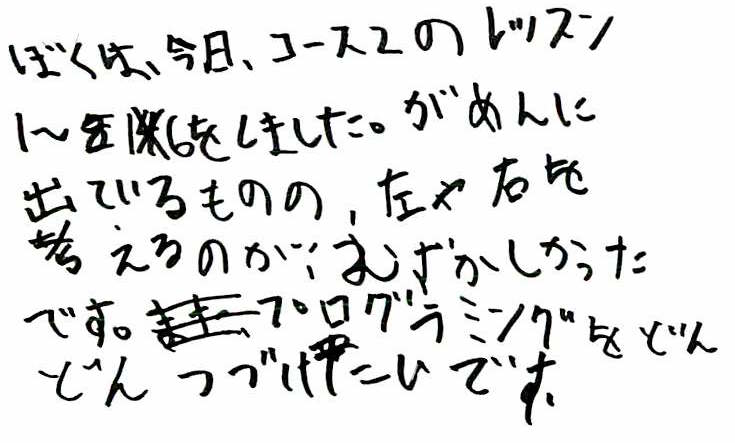 ぼくは、今日、コース2のレッスン
1〜6をしました。がめんに
出ているものの、左や右を
考えるのが、むずかしかった
です。プログラミングをどん
どんつづけたいです。